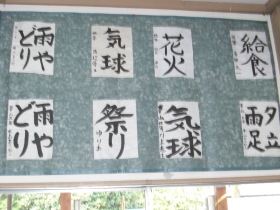 雨や
どり
気球
花火
給食
雨や
どり
祭り
気球
夕立
雨足